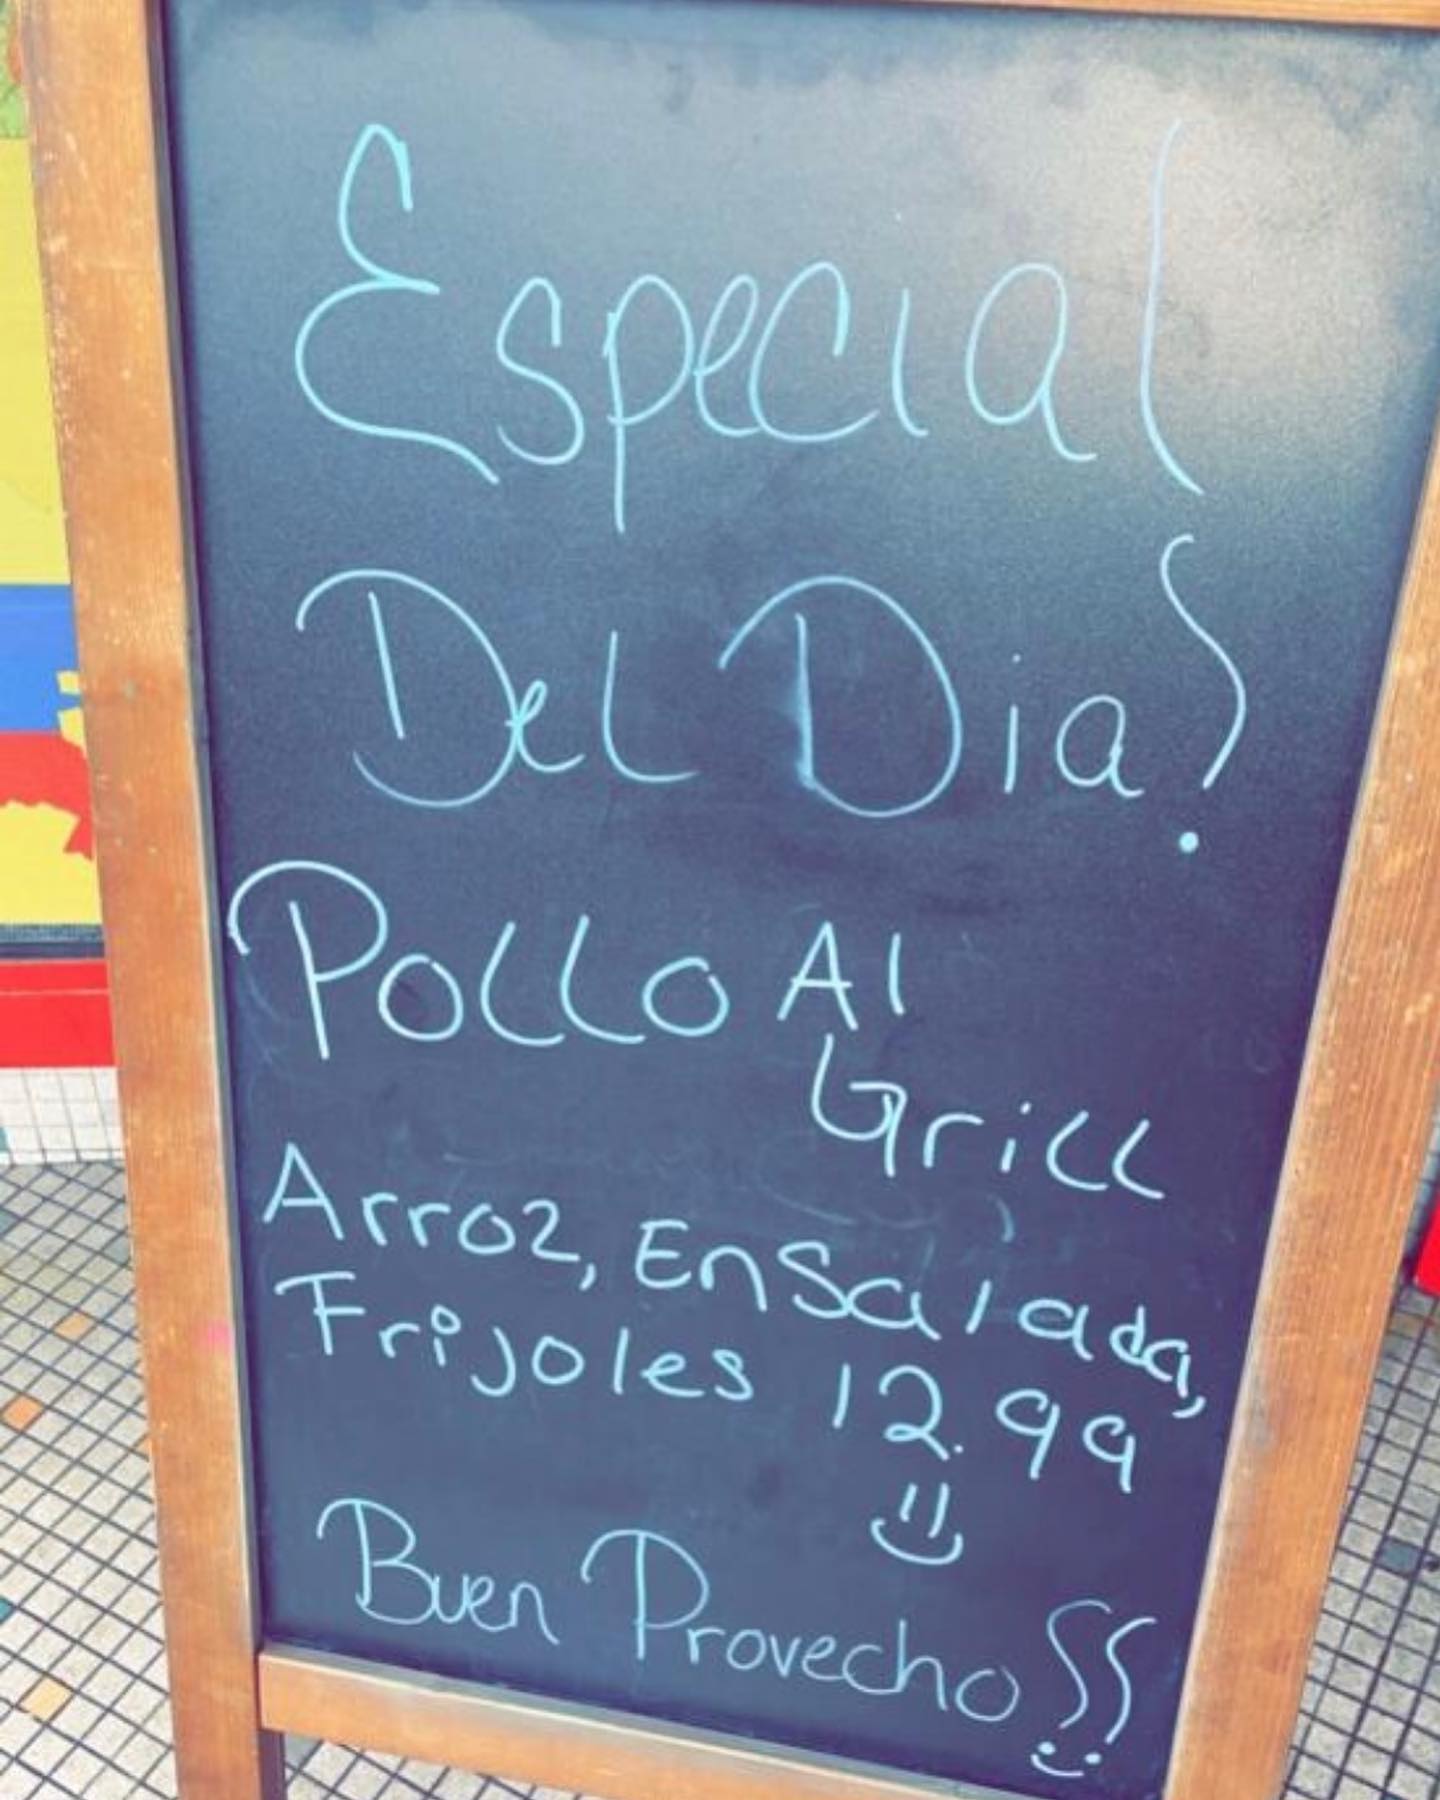 Especial
Del Dia!
Pollo Al
Grill
Arroz, Ensalada,
Frijoles 12.99
Buen Provecho!!